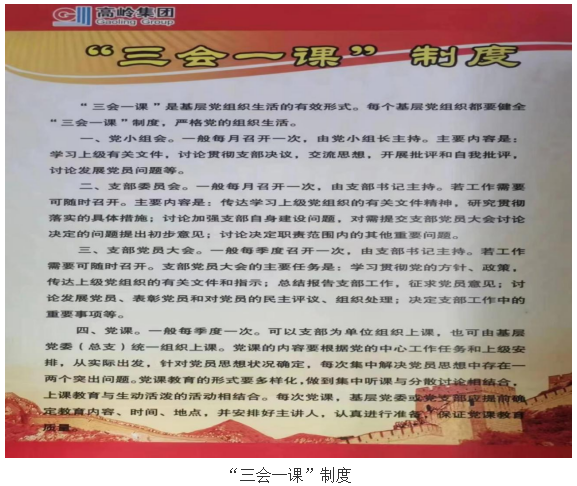 高岭集团
Gaoling Group
“三会一课”制度
“三会一课”是基层党组织生活的有效形式。每个基层党组织都要健全
“三会一课”制度，严格党的组织生活。
一、党小组会。一般每月召开一次，由党小组长主持。主要内容是：
学习上级有关文件，讨论贯彻支部决议，交流思想，开展批评和自我批评，
讨论发展党员问题等。
二、支部委员会。一般每月召开一次，由支部书记主持。若工作需要
可随时召开。主要内容是：传达学习上级党组织的有关文件精神，研究贯彻
落实的具体措施；讨论加强支部自身建设问题，对需提交支部党员大会讨论
决定的问题提出初步意见；讨论决定职责范围内的其他重要问题。
三、支部党员大会。一般每季度召开一次，由支部书记主持。若工作
需要可随时召开。支部党员大会的主要任务是：学习贯彻党的方针、政策，
传达上级党组织的有关文件和指示；总结报告支部工作，征求党员意见；讨
论发展党员、表彰党员和对党员的民主评议、组织处理；决定支部工作中的
重要事项等。
四、党课。一般每季度一次。可以支部为单位组织上课，也可由基层
党委（总支）统一组织上课。党课的内容要根据党的中心工作任务和上级安
排，从实际出发，针对党员思想状况确定，每次集中解决党员思想中存在一
两个突出问题。党课教育的形式要多样化，做到集中听课与分散讨论相结合，
上课教育与生动活泼的活动相结合。每次党课，基层党委或党支部应提前确
定教育内容、时间、地点，并安排好主讲人，认真进行准备，保证党课教育
质量。
“三会一课”制度